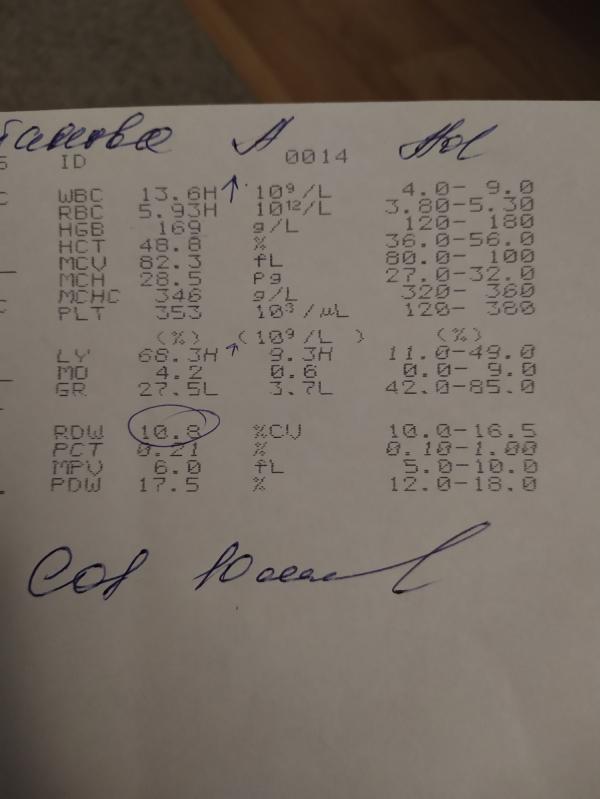 А
ID 0014
WBC 13.6H ↑ 10⁹/L 4.0- 9.0
RBC 5.93H 10¹²/L 3.80-5.30
HGB 169 g/L 120- 180
HCT 48.8 % 36.0-56.0
MCV 82.3 fL 80.0- 100
MCH 28.5 Pg 27.0-32.0
MCHC 346 g/L 320- 360
PLT 353 10³/µL 120- 380
(%) (10⁹/L ) (%)
LY 68.3H ↑ 9.3H 11.0-49.0
MO 4.2 0.6 0.0- 9.0
GR 27.5L 3.7L 42.0-85.0
RDW 10.8 %CV 10.0-16.5
PCT 0.21 % 0.10-1.00
MPV 6.0 fL 5.0-10.0
PDW 17.5 % 12.0-18.0